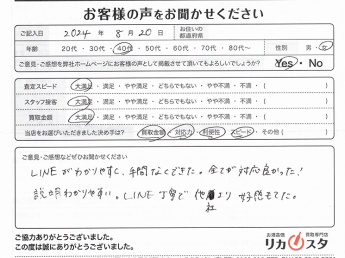 お客様の声をお聞かせください
ご記入日 2024 年 8 月 20 日 お住いの都道府県
年齢 20代・30代・40代・50代・60代・70代・80代〜 性別 男・女
ご意見・ご感想を弊社ホームページにお客様の声として掲載させて頂いてもよろしいでしょうか? Yes・No
査定スピード 大満足・満足・やや満足・どちらでもない・やや不満・不満・( )
スタッフ接客 大満足・満足・やや満足・どちらでもない・やや不満・不満・( )
買取金額 大満足・満足・やや満足・どちらでもない・やや不満・不満・( )
当店をお選びいただきました決め手は? 買取金額・対応力・利便性・スピード・その他( )
ご意見・ご感想などぜひお聞かせください
LINEがわかりやすく、手間なくできた。全てが対応良かった!
説明わかりやすい。LINE丁寧で他社より好感もてた。
ご協力ありがとうございました。
この度は誠にありがとうございました。
お酒買取 買取専門店
リカスタ